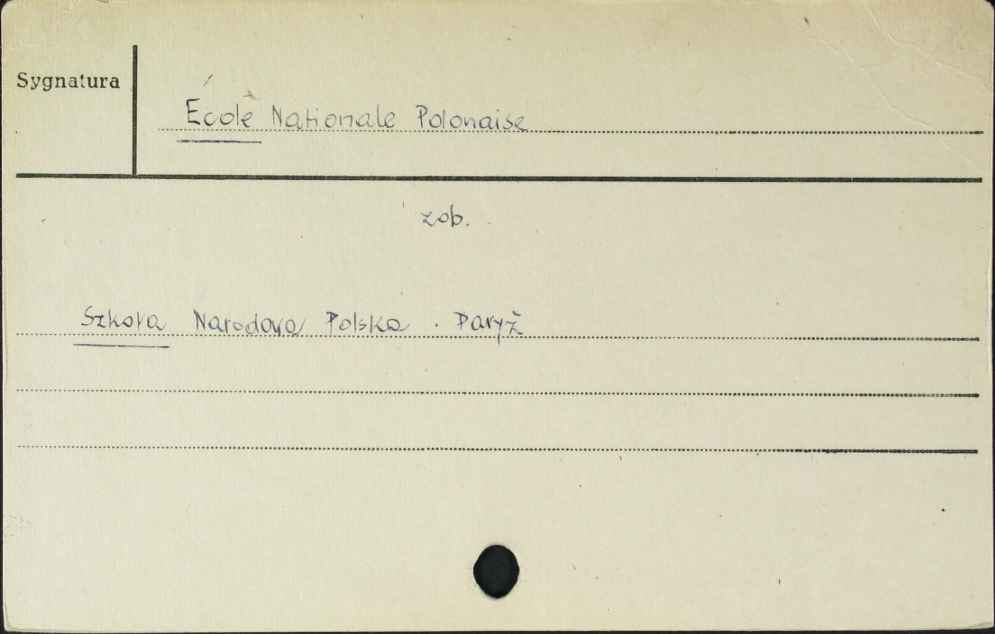 Sygnatura
École Nationale Polonaise
zob.
Szkoła Narodowa Polska. Paryż